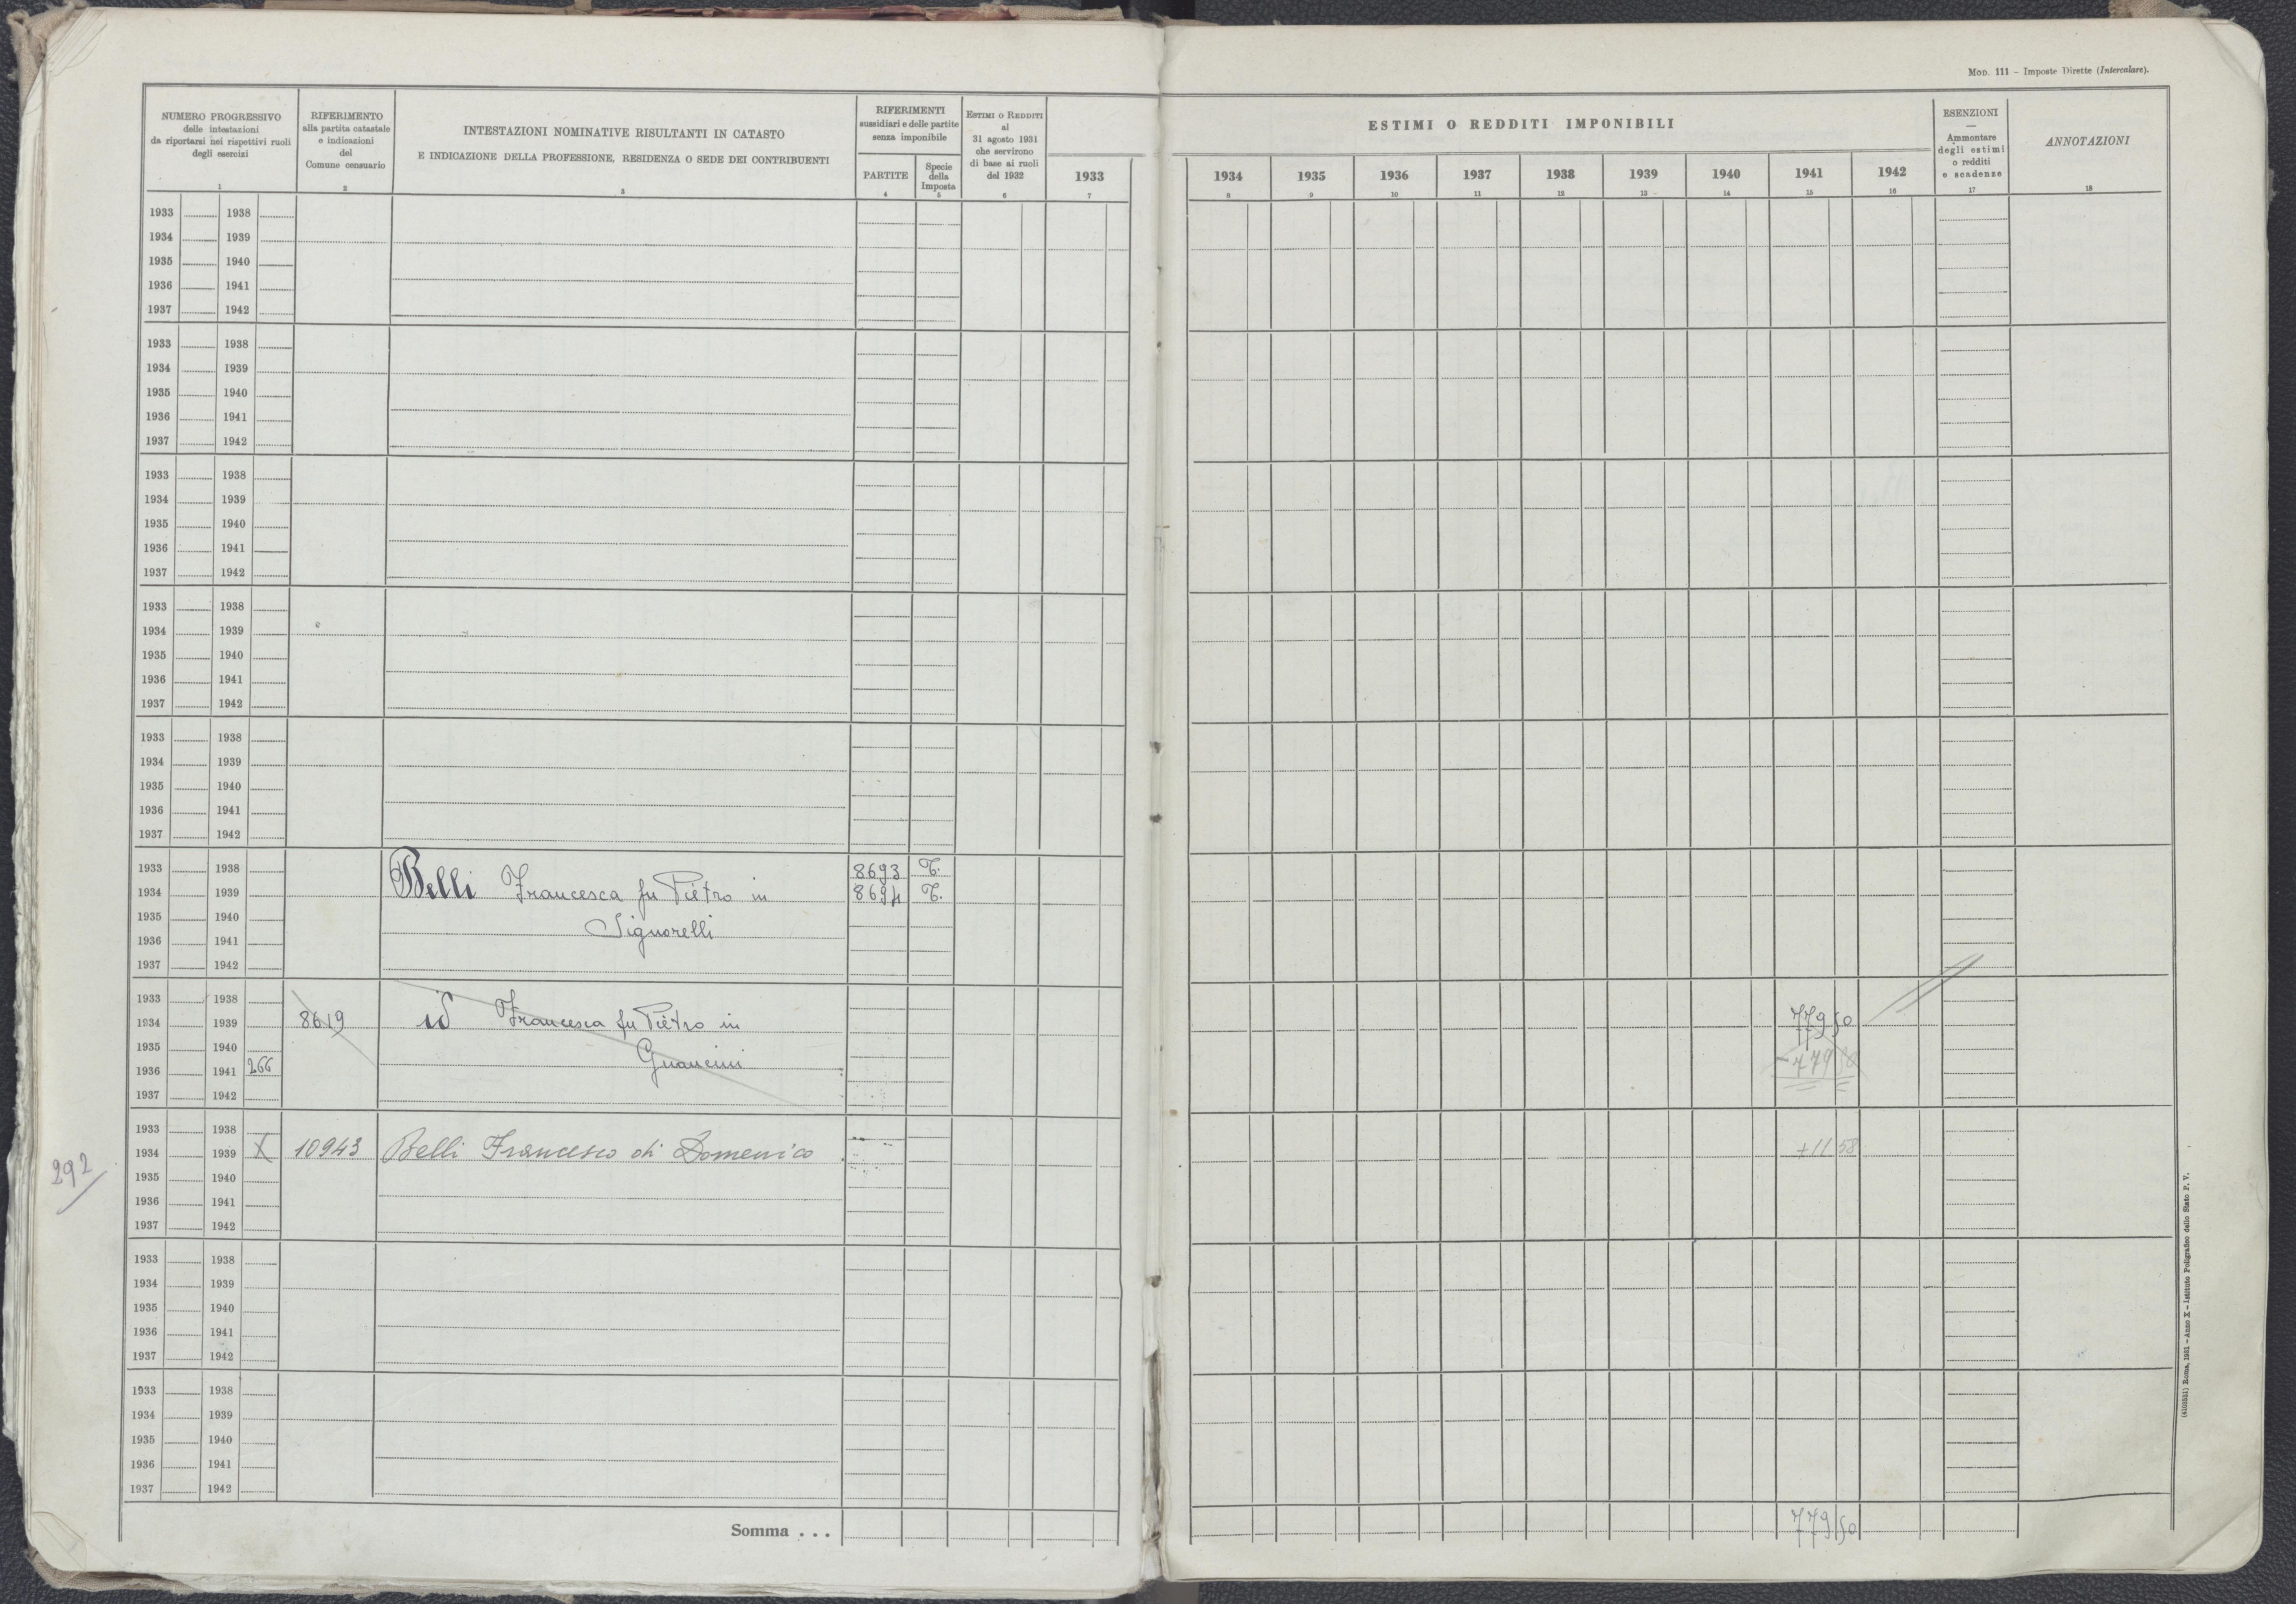 Mod. 111 - Imposte Dirette (Intercalare).
NUMERO PROGRESSIVO
delle intestazioni
da riportarsi nei rispettivi ruoli
degli esercizi
1
RIFERIMENTO
alla partita catastale
e indicazioni
del
Comune censuario
2
INTESTAZIONI NOMINATIVE RISULTANTI IN CATASTO
E INDICAZIONE DELLA PROFESSIONE, RESIDENZA O SEDE DEI CONTRIBUENTI
3
RIFERIMENTI
sussidiari e delle partite
senza imponibile
PARTITE
4
Specie
della
Imposta
5
ESTIMI O REDDITI
al
31 agosto 1931
che servirono
di base ai ruoli
del 1932
6
1933
7
ESTIMI O REDDITI IMPONIBILI
1934 1935 1936 1937 1938 1939 1940 1941 1942
8 9 10 11 12 13 14 15 16
ESENZIONI
—
Ammontare
degli estimi
o redditi
e scadenze
17
ANNOTAZIONI
18
1933 1938
1934 1939
1935 1940
1936 1941
1937 1942
1933 1938
1934 1939
1935 1940
1936 1941
1937 1942
1933 1938
1934 1939
1935 1940
1936 1941
1937 1942
1933 1938
1934 1939
1935 1940
1936 1941
1937 1942
1933 1938
1934 1939
1935 1940
1936 1941
1937 1942
1933 1938 8693 T.
1934 1939 Belli Francesca fu Pietro in 8694 T.
1935 1940
1936 1941 Signorelli
1937 1942
1933 1938
1934 1939 8619 id Francesca fu Pietro in 779 50
1935 1940
1936 1941 266 Guancini - 779 50
1937 1942
1933 1938
292
1934 1939 X 10943 Belli Francesco di Domenico + 11 58
1935 1940
1936 1941
1937 1942
1933 1938
1934 1939
1935 1940
1936 1941
1937 1942
1933 1938
1934 1939
1935 1940
1936 1941
1937 1942
Somma . . . 779 50
(4103531) Roma, 1931 - Anno X - Istituto Poligrafico dello Stato P. V.